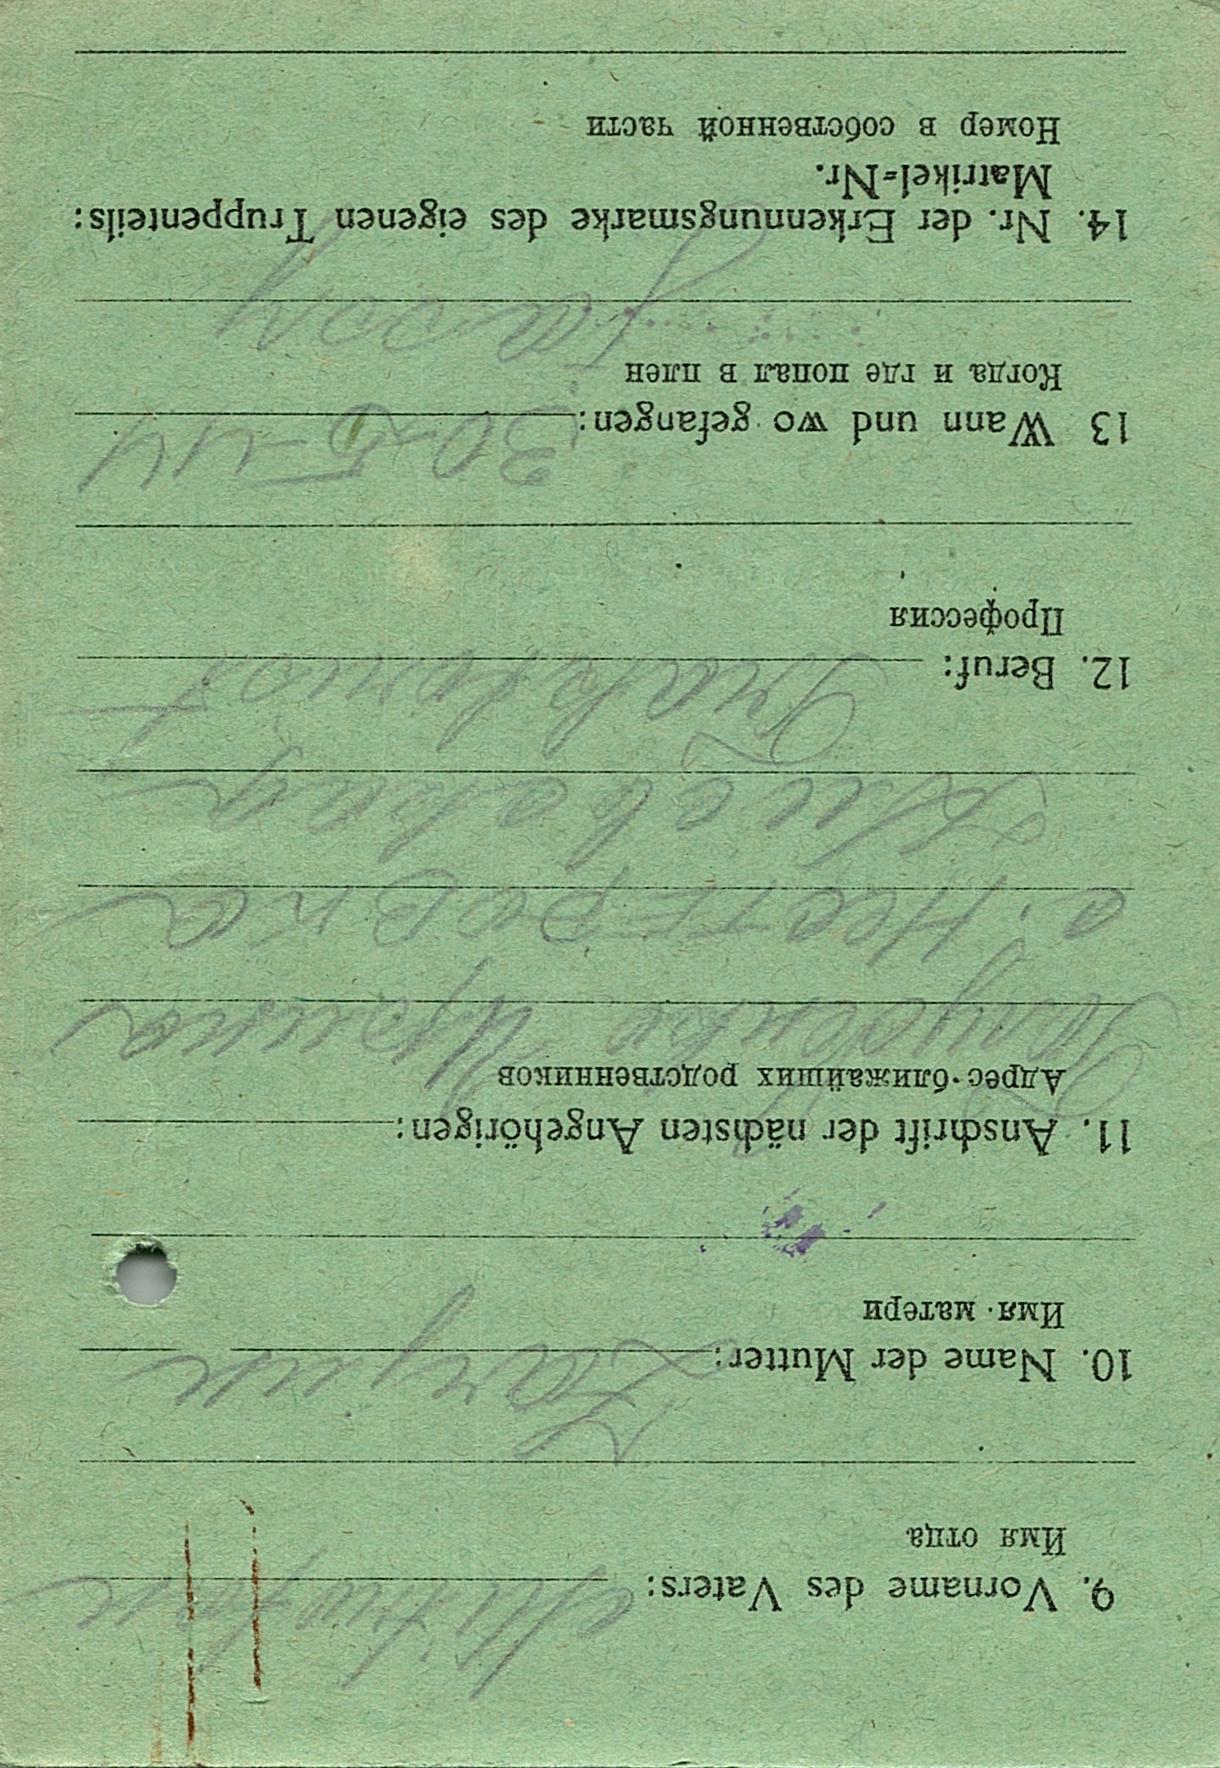 9. Vorname des Vaters:
Имя отца
10. Name der Mutter:
Имя матери
11. Anschrift der nächsten Angehörigen:
Адрес ближайших родственников
Ирина
с. Нестеровка
12. Beruf:
Профессия
13 Wann und wo gefangen: 30-5-44
Когда и где попал в плен
14. Nr. der Erkennungsmarke des eigenen Truppenteils:
Matrikel-Nr.
Номер в собственной части